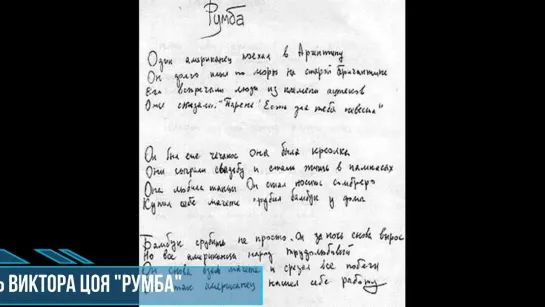 Румба
Один американец поехал в Аргентину
Он долго плыл по морю на старой бригантине
Его встречали люди из племени ацтеков
Они сказали: "Парень! Есть для тебя невеста"
Он был ещё чечако она была креолка
Они сыграли свадьбу и стали жить в пампасах
Она любила танцы Он стал носить сомбреро
Купил себе мачете рубил бамбук у дома
Бамбук срубить не просто. Он за ночь снова вырос
Но все американцы народ трудолюбивый
Он снова взял мачете и срезал все побеги
так американец нашел себе работу
Ь ВИКТОРА ЦОЯ "РУМБА"